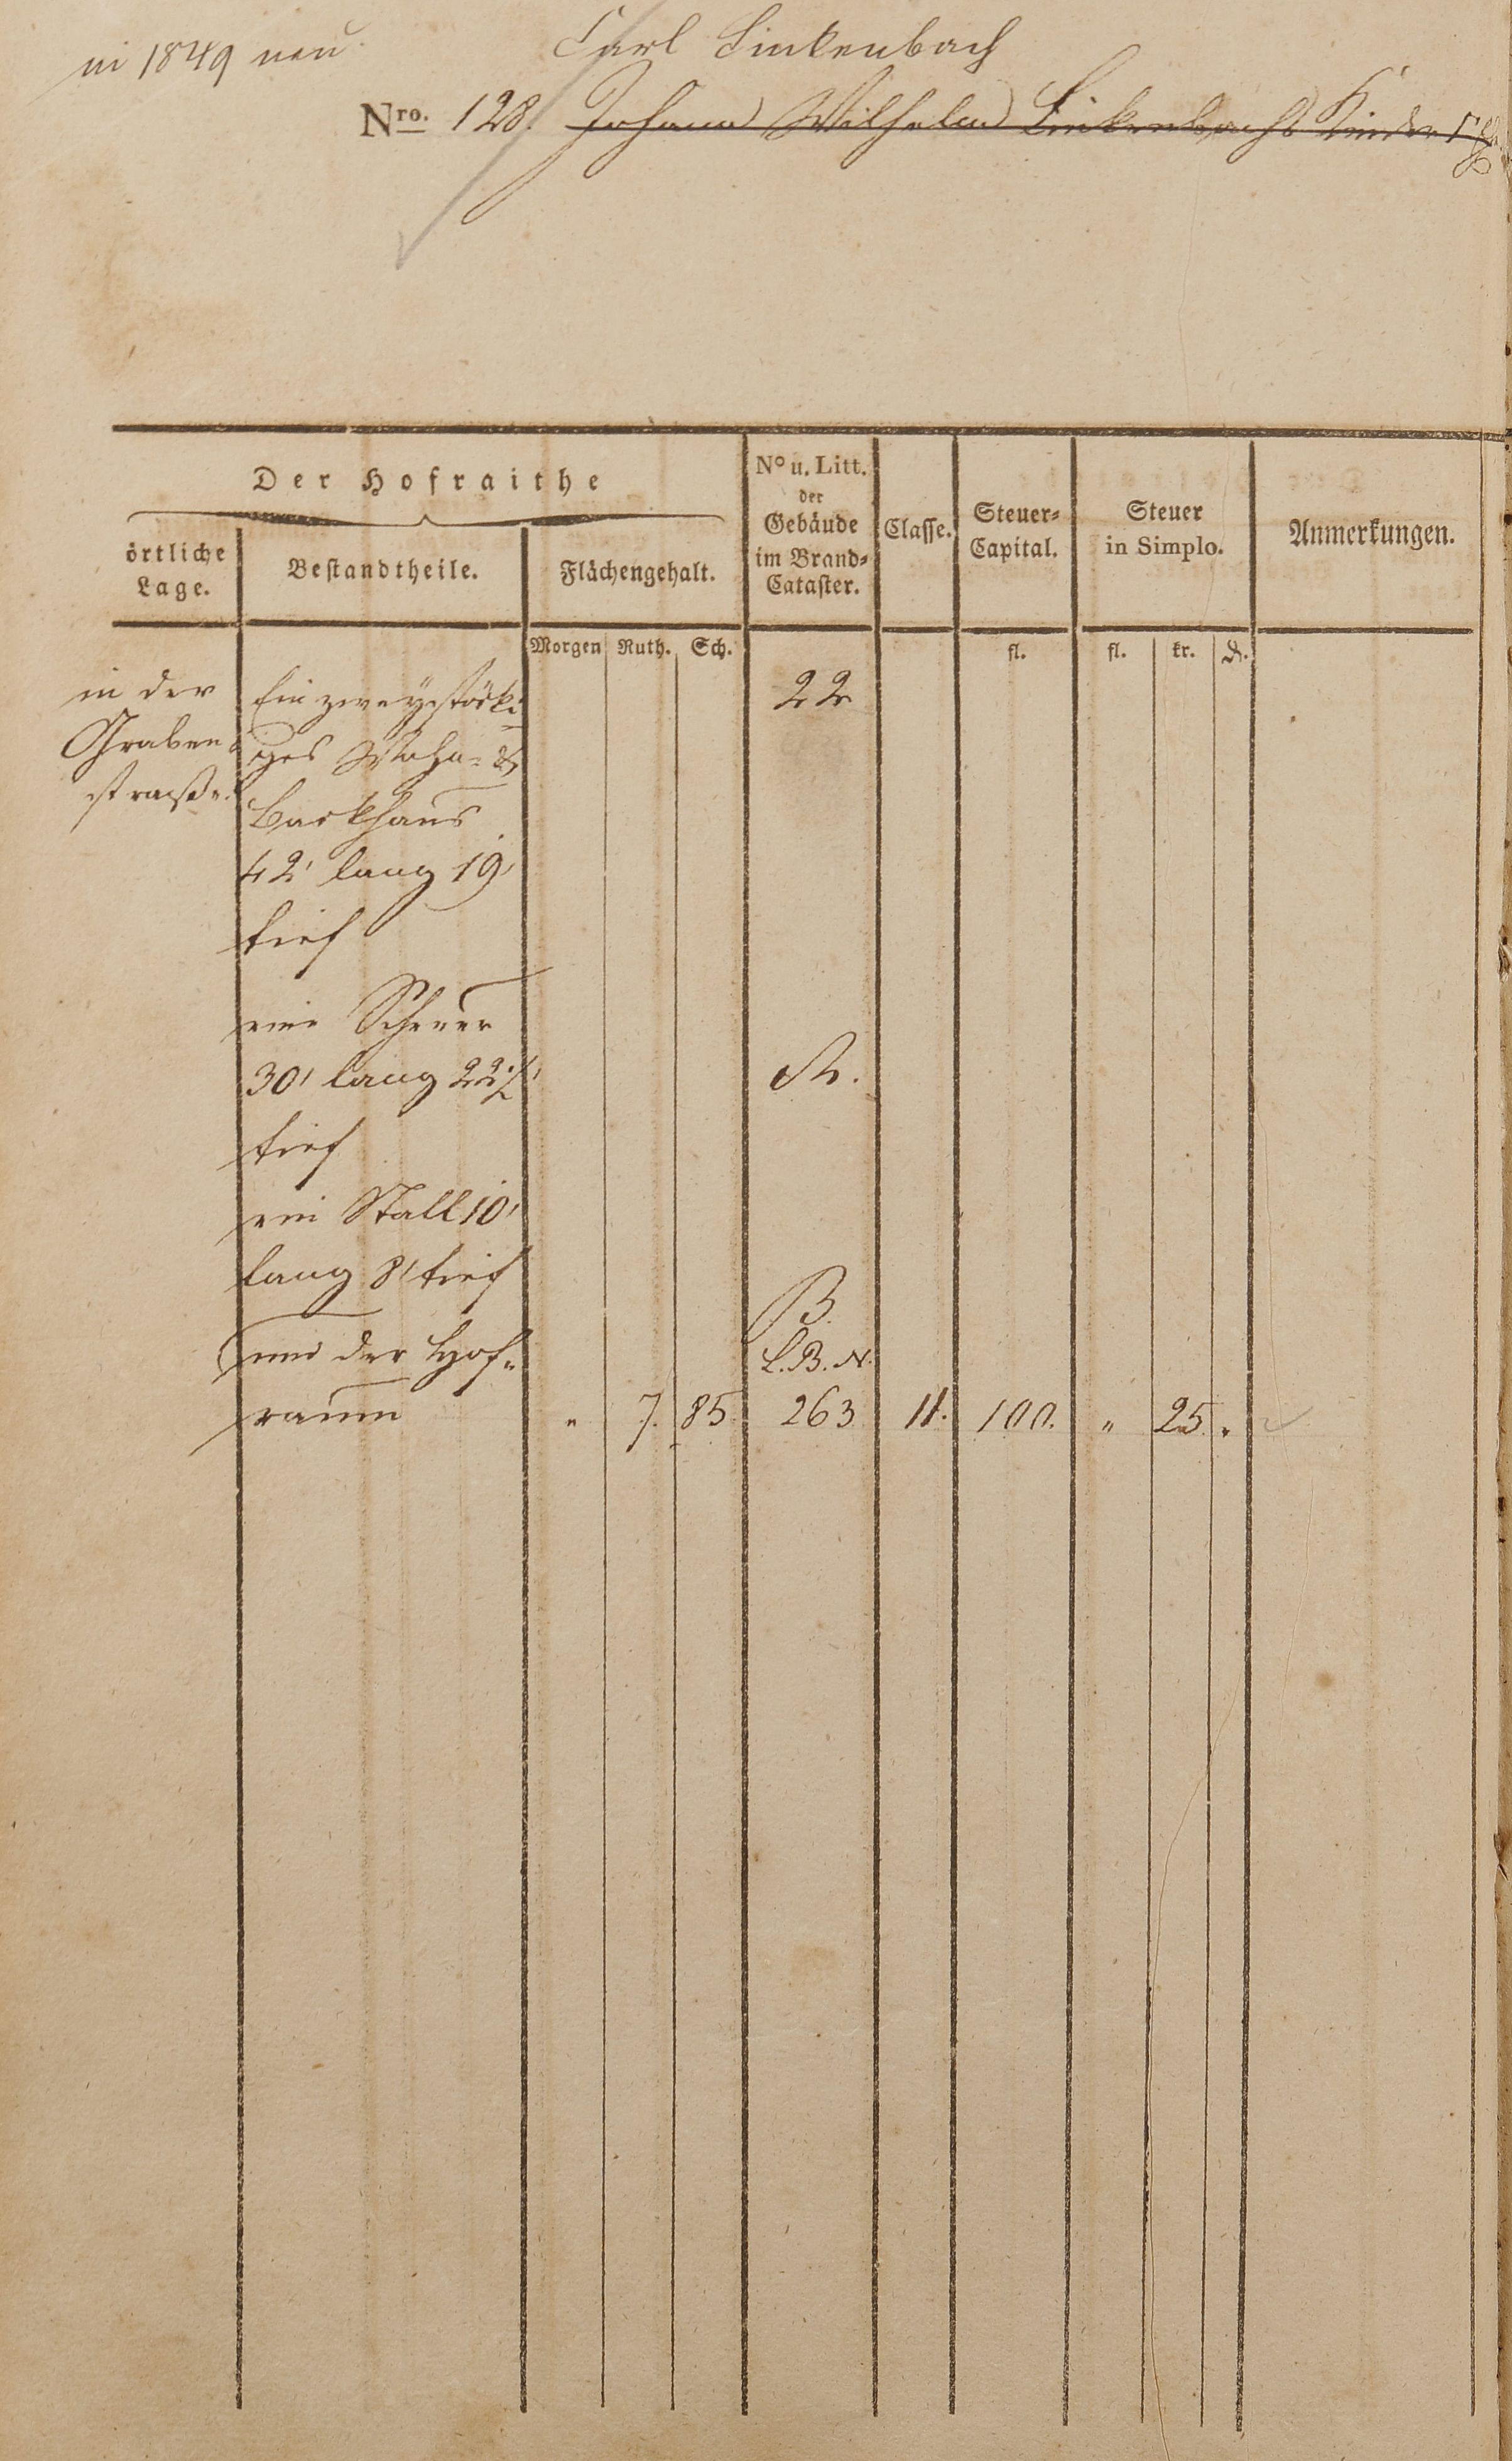 in 1849 neu
Carl Linkenbach
Nro. 128. Johann Wilhelm Linkenbachs Kinder
Der Hofraithe
örtliche Lage.
Bestandtheile.
Flächengehalt.
No u. Litt. der Gebäude im Brand-Cataster.
Classe.
Steuer-Capital.
Steuer in Simplo.
Anmerkungen.
Morgen Ruth. Sch. fl. fl. kr. d.
in der Ein zweÿstöcki- 22
Graben- ges Wohn- &
straße. Backhaus
42' lang 19'
tief
eine Scheuer
30' lang 22½' A.
tief
ein Stall 10'
lang 8' tief B.
und der Hof- L.B.N.
raum " 7. 85. 263 11. 100. " 25. "